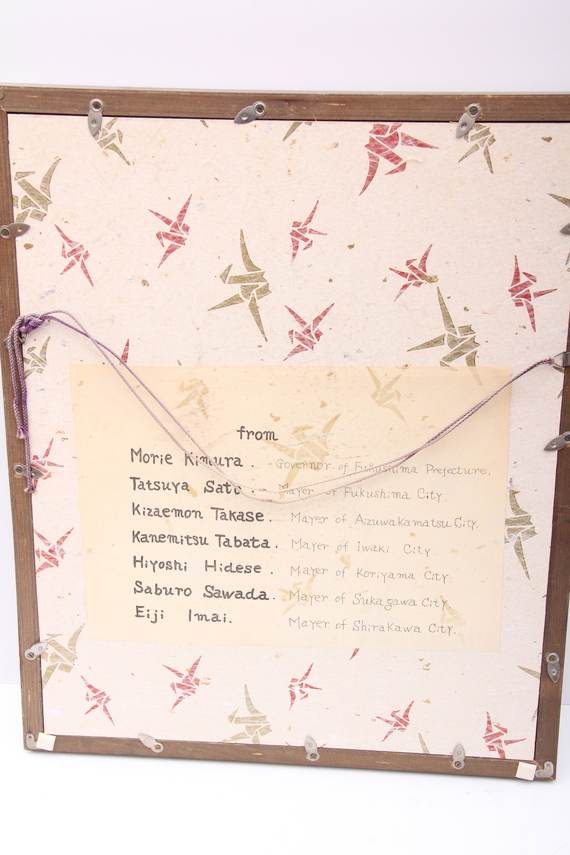 from
Morie Kimura. Governor of Fukushima Prefecture.
Tatsuya Sato. Mayer of Fukushima City.
Kizaemon Takase. Mayer of Aizuwakamatsu City.
Kanemitsu Tabata. Mayer of Iwaki City.
Hiyoshi Hidese. Mayer of Koriyama City.
Saburo Sawada. Mayer of Sukagawa City.
Eiji Imai. Mayer of Shirakawa City.